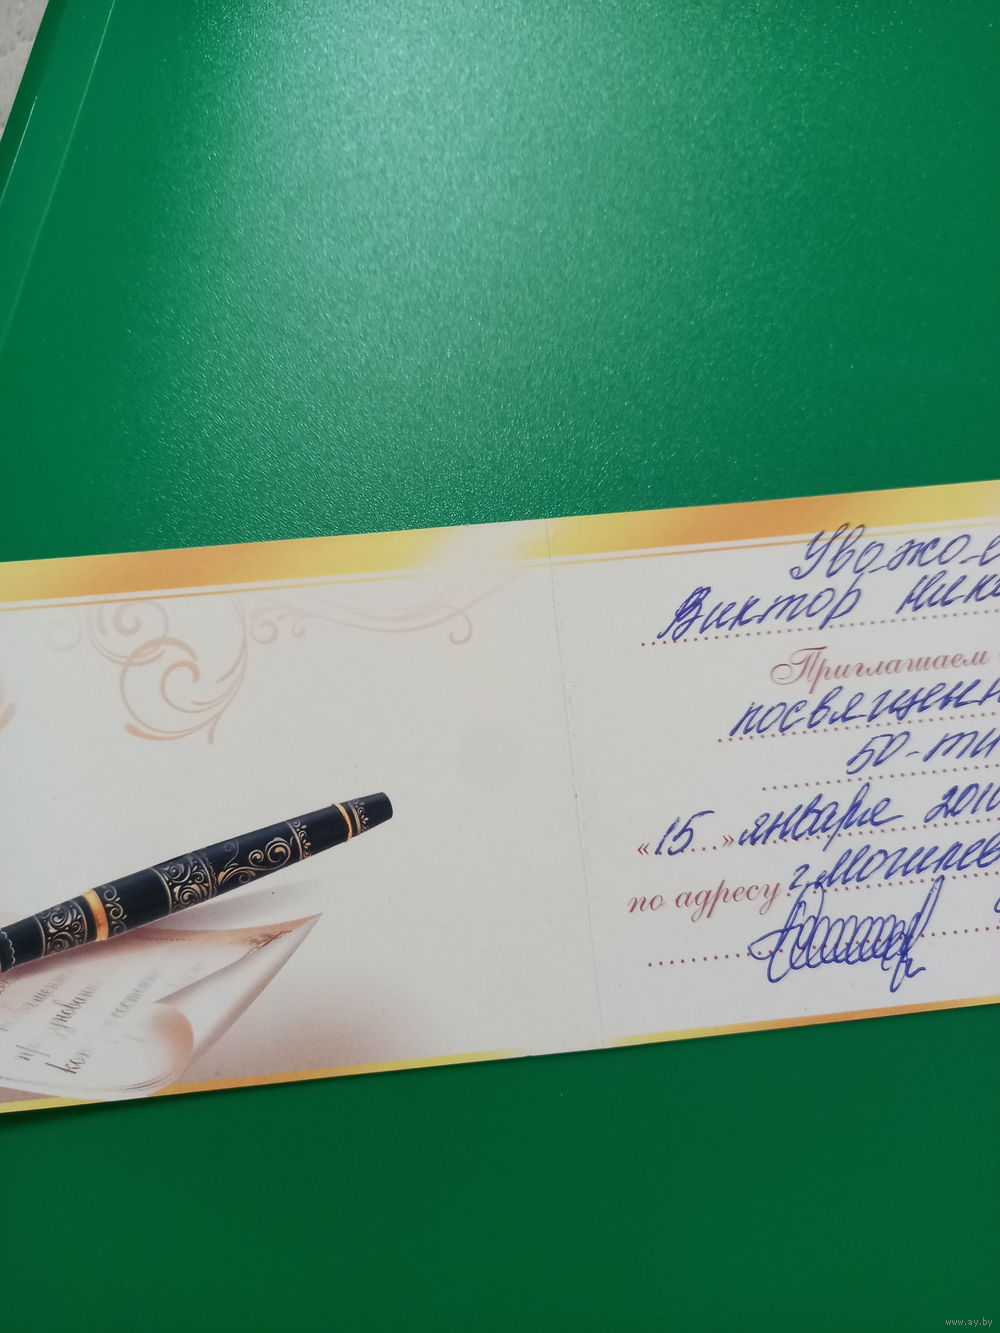 Уважае
Виктор Нико
Приглашаем
посвященн
50-ти
«15...» января 201
по адресу г. Могилев
www.ay.by